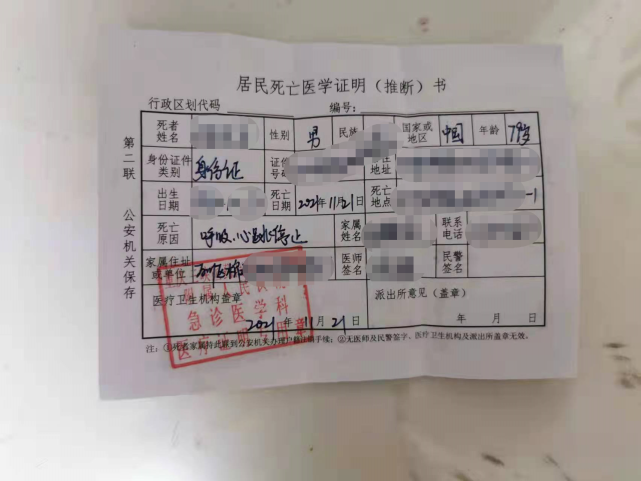 居民死亡医学证明（推断）书
行政区划代码 编号：
第二联 公安机关保存
死者姓名 性别 男 民族 国家或地区 中国 年龄 79岁
身份证件类别 身份证 证件号码 地址
出生日期 死亡日期 2021年11月21日 死亡地点 -1
死亡原因 呼吸心跳停止 家属姓名 联系电话
家属住址或单位 医师签名 民警签名
医疗卫生机构盖章 派出所意见（盖章）
急诊医学科
2021年11月21日 年 月 日
注：①死者家属持此联到公安机关办理户籍注销手续；②无医师及民警签字、医疗卫生机构及派出所盖章无效。